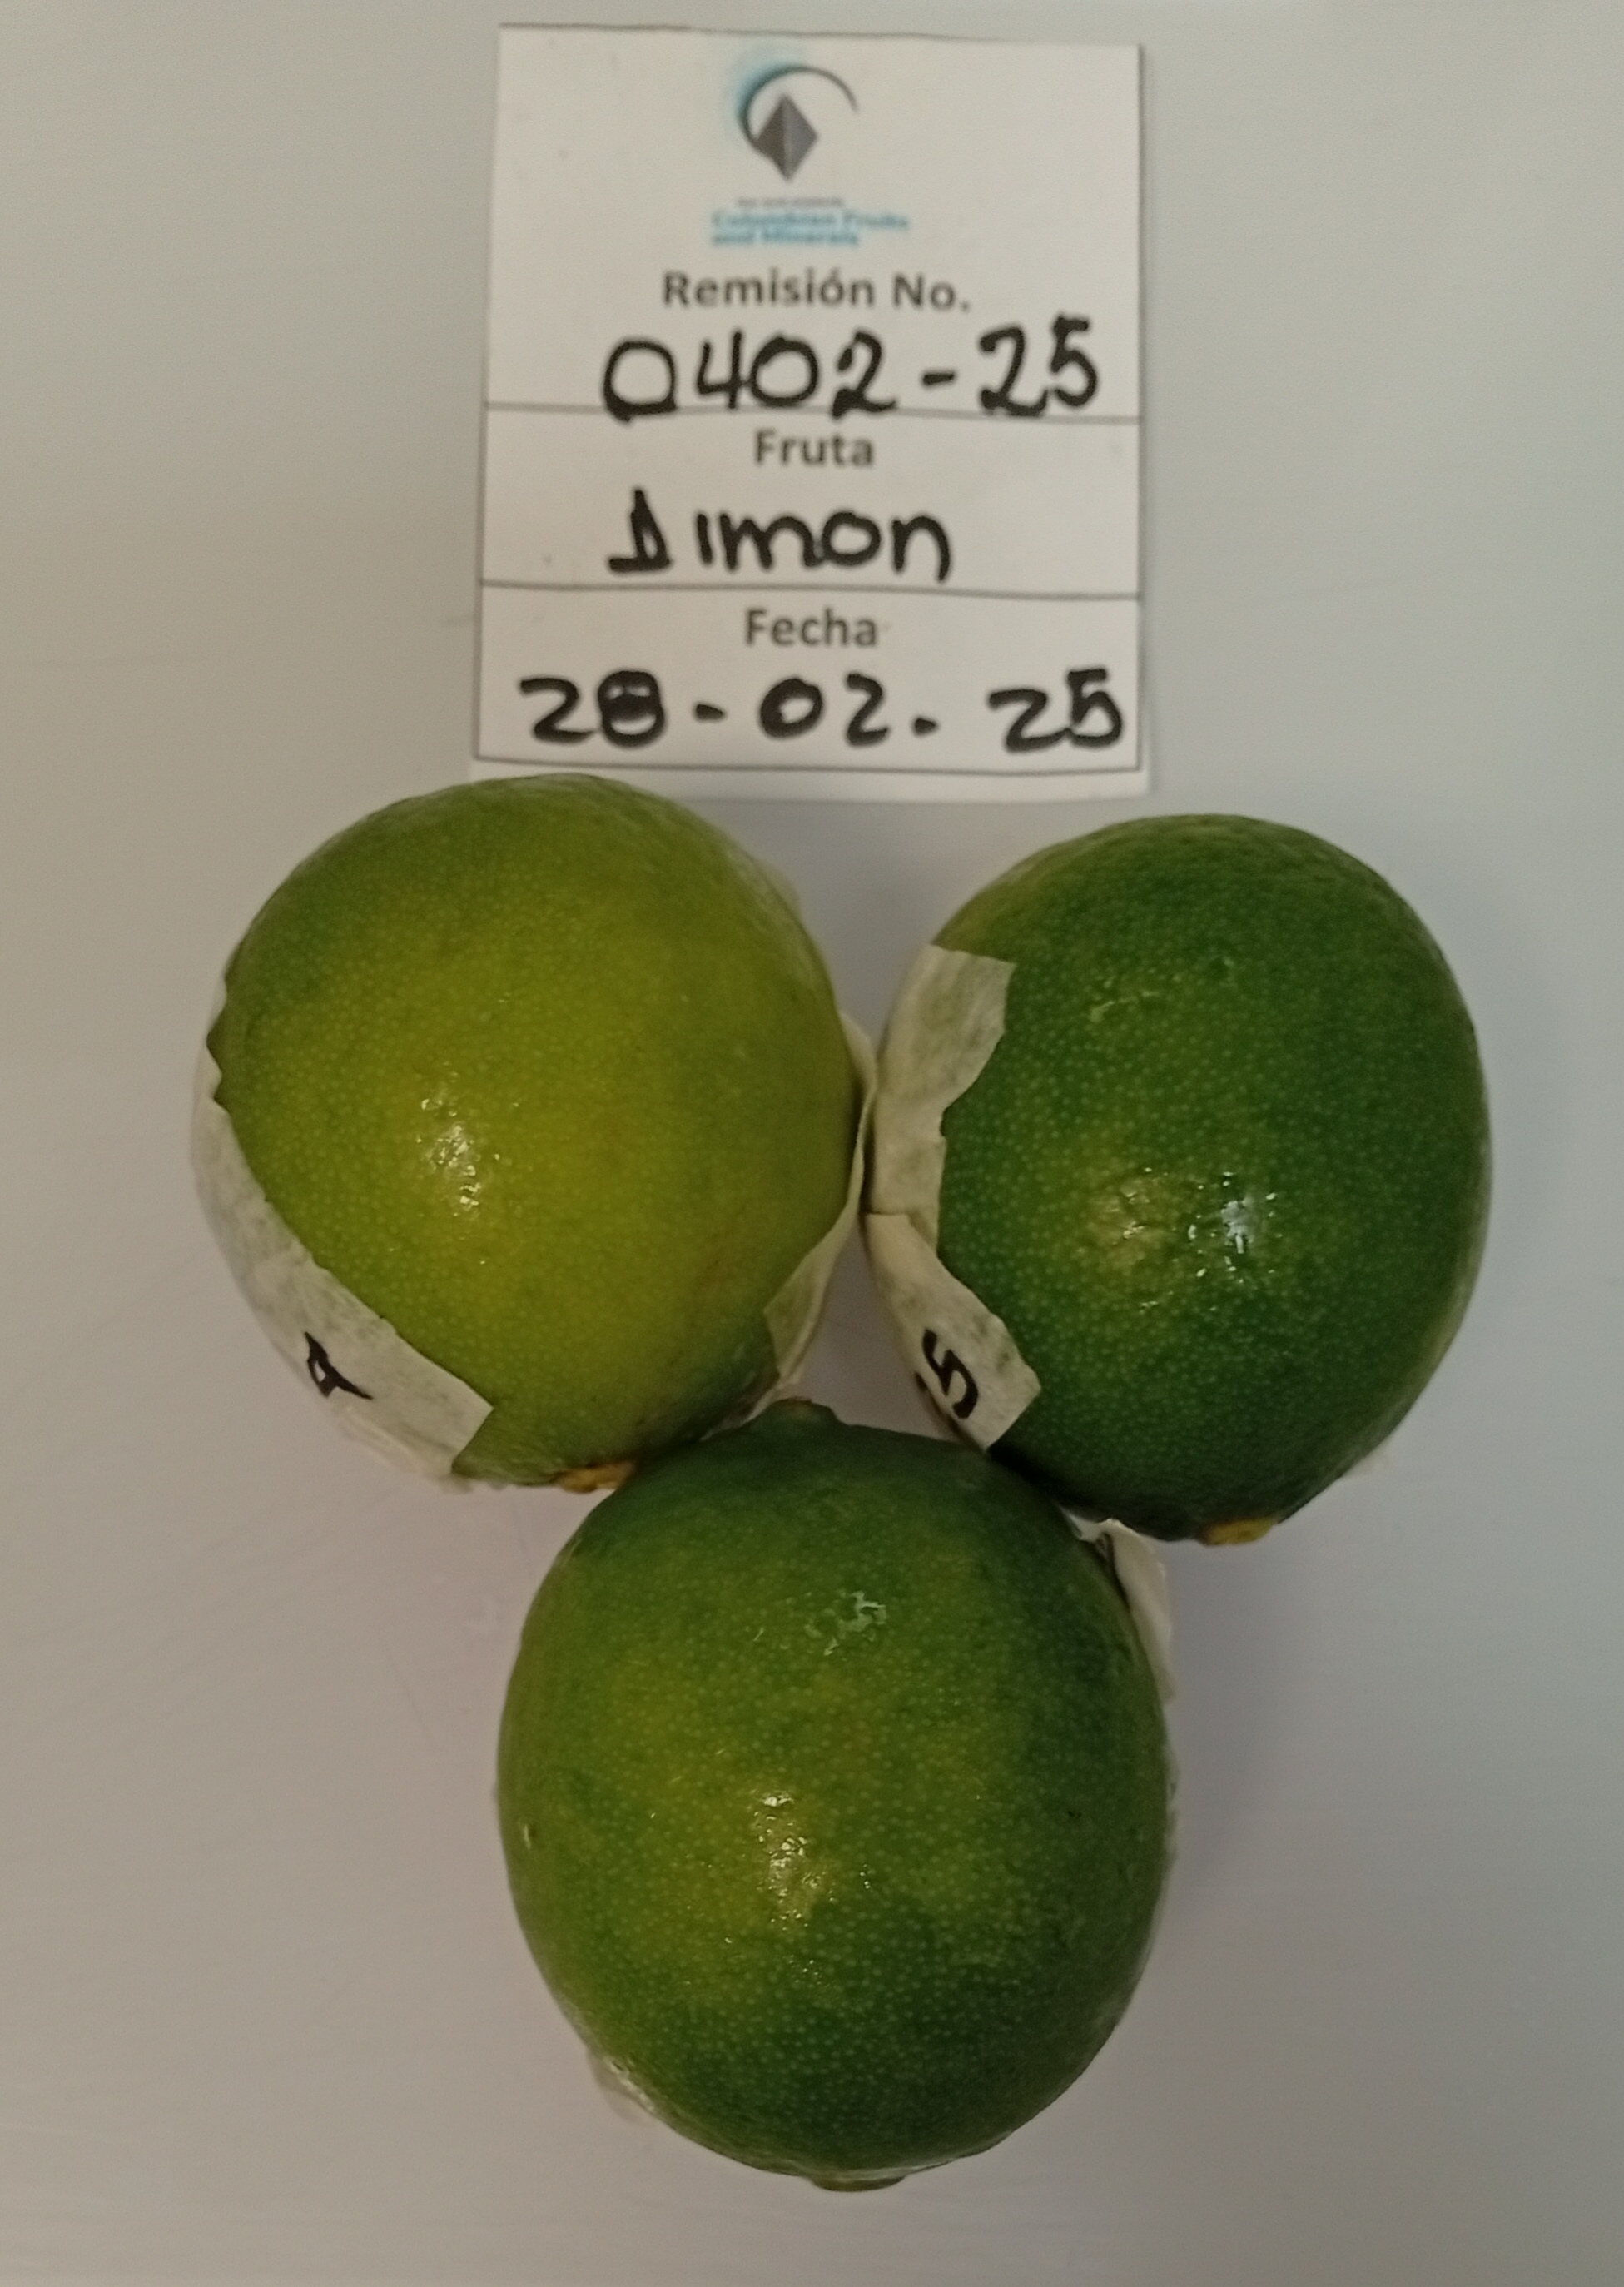 Columbian Fruits
and Minerals
Remisión No.
0402-25
Fruta
Limon
Fecha
28-02-25
4
5